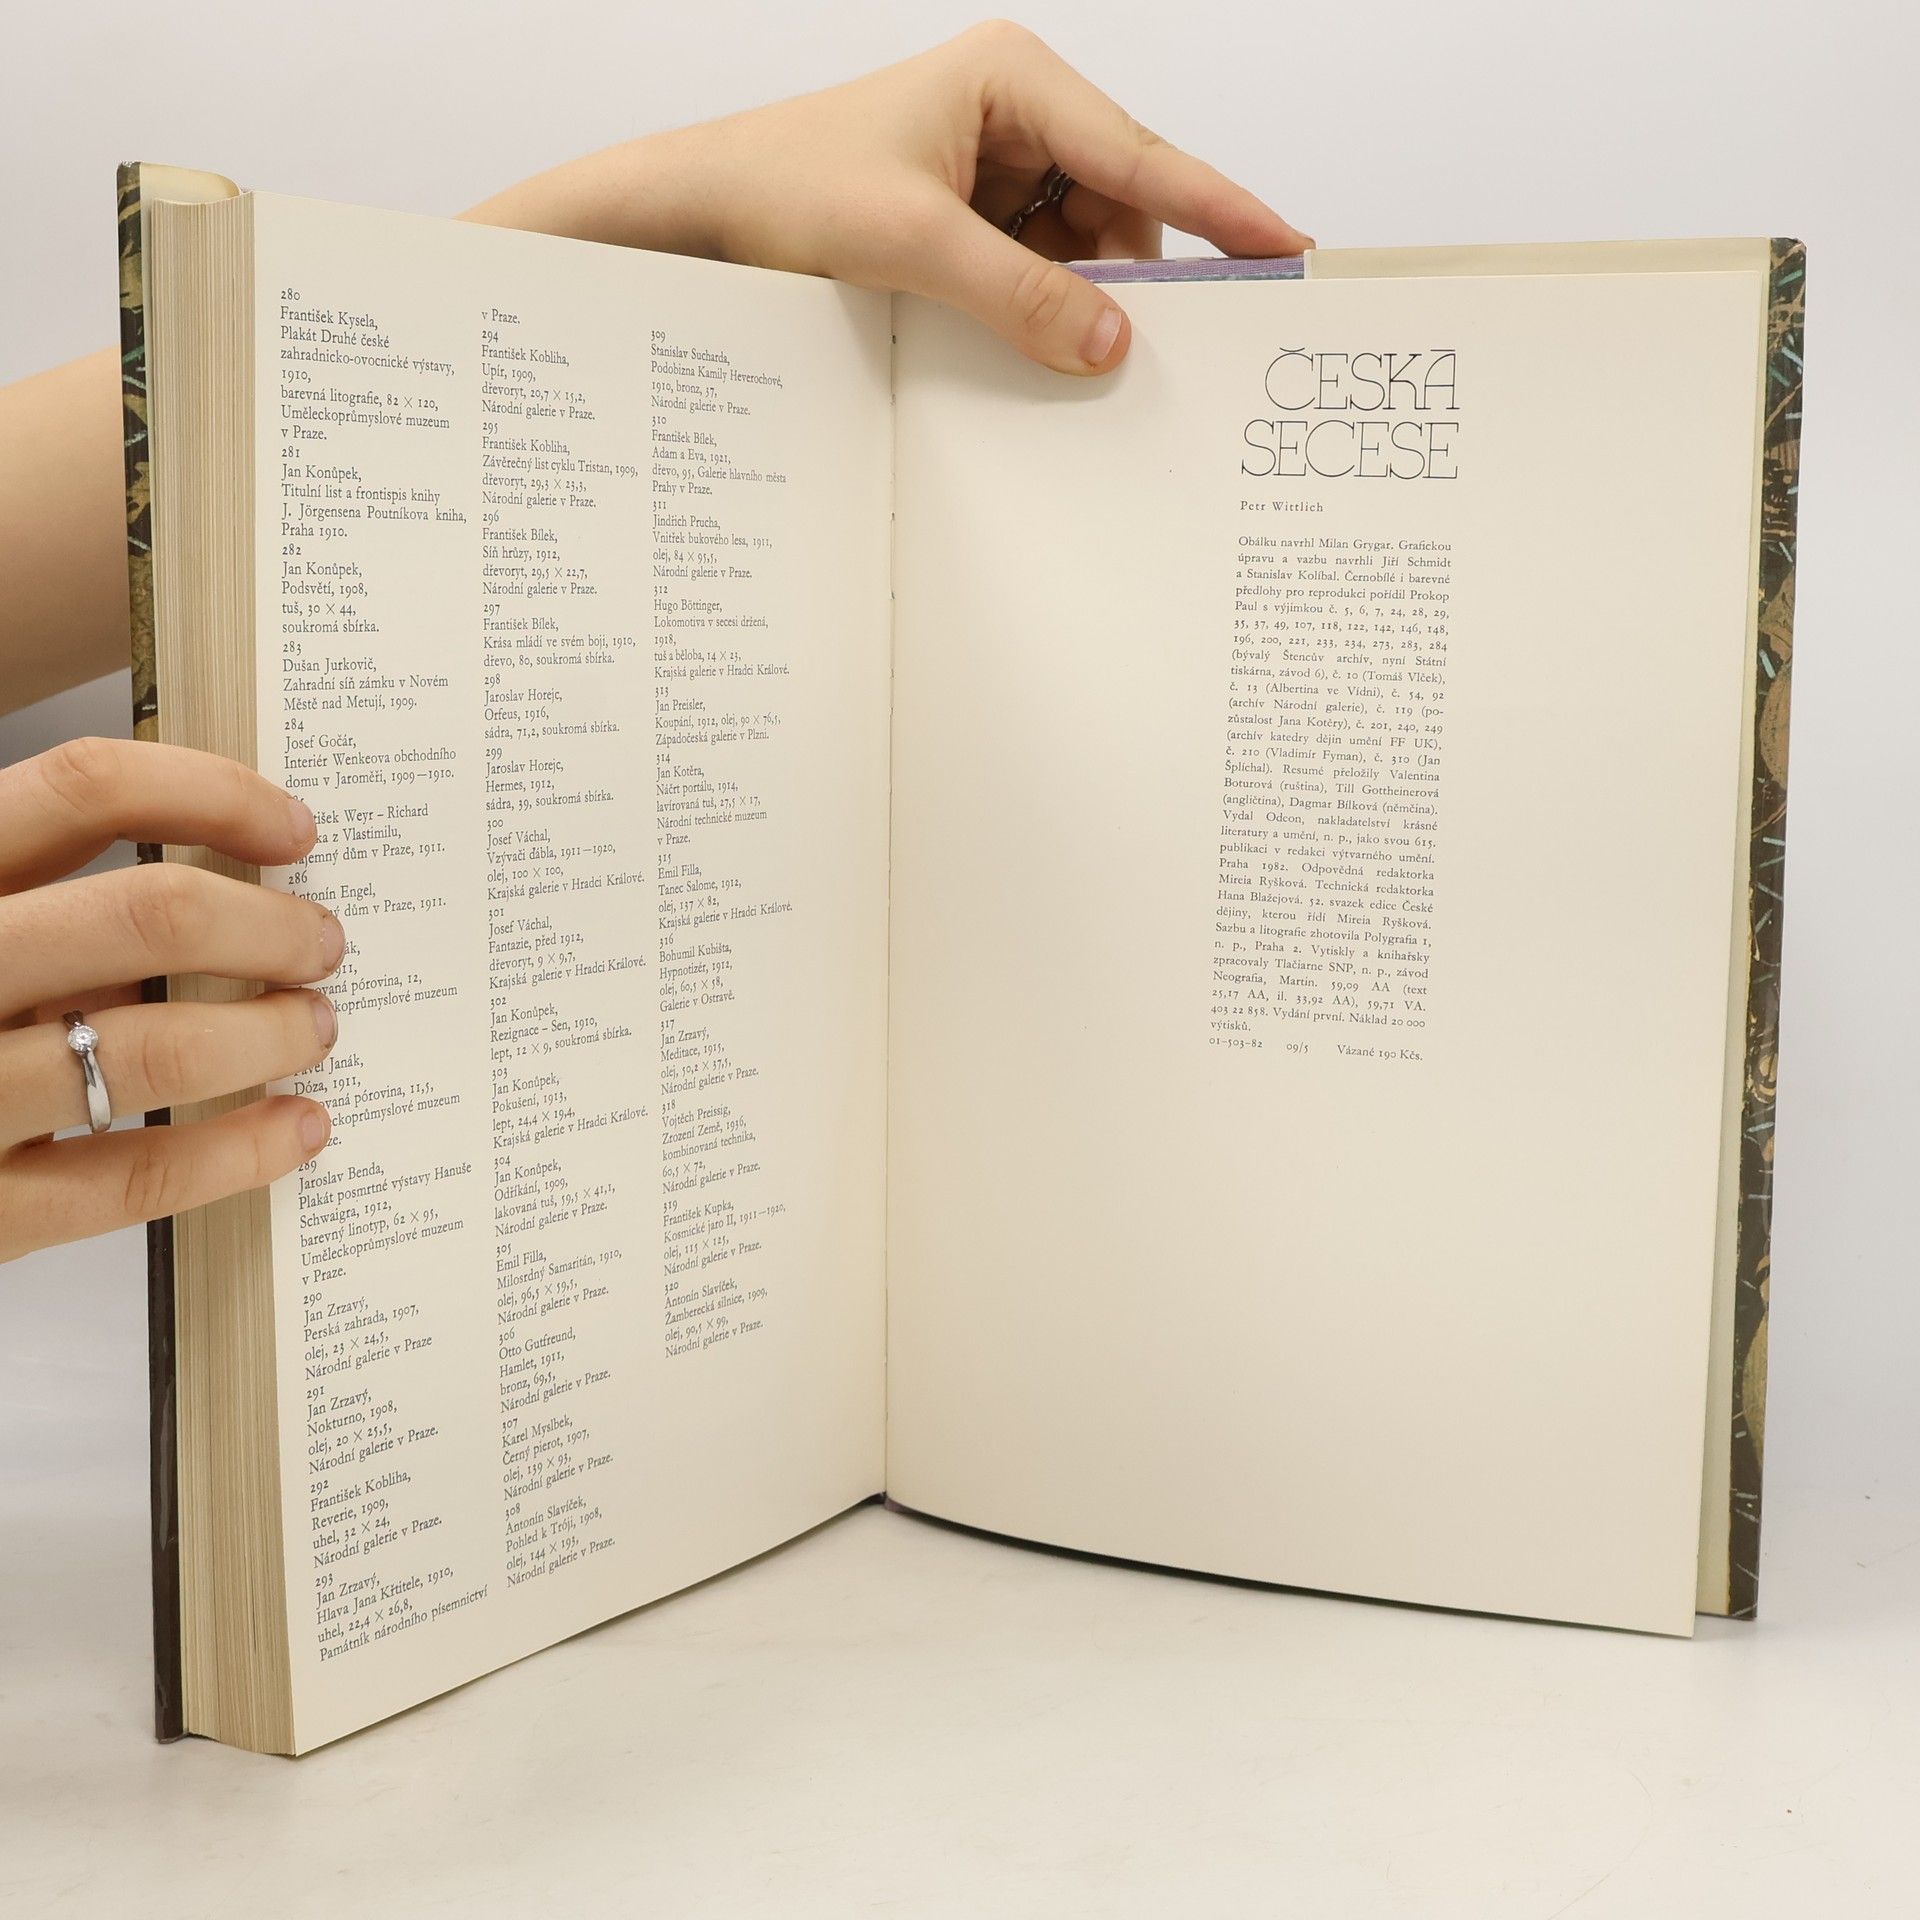 280
František Kysela,
Plakát Druhé české
zahradnicko-ovocnické výstavy,
1910,
barevná litografie, 82 × 120,
Uměleckoprůmyslové muzeum
v Praze.
281
Jan Konůpek,
Titulní list a frontispis knihy
J. Jörgensena Poutníkova kniha,
Praha 1910.
282
Jan Konůpek,
Podsvětí, 1908,
tuš, 30 × 44,
soukromá sbírka.
283
Dušan Jurkovič,
Zahradní síň zámku v Novém
Městě nad Metují, 1909.
284
Josef Gočár,
Interiér Wenkeova obchodního
domu v Jaroměři, 1909—1910.
Weyr – Richard
z Vlastimilu,
dům v Praze, 1911.
286
Antonín Engel,
dům v Praze, 1911.
pórovina, 12,
muzeum
Janák,
Dóza, 1911,
pórovina, 11,5,
muzeum
289
Jaroslav Benda,
Plakát posmrtné výstavy Hanuše
Schwaigra, 1912,
barevný linotyp, 62 × 95,
Uměleckoprůmyslové muzeum
v Praze.
290
Jan Zrzavý,
Perská zahrada, 1907,
olej, 23 × 24,5,
Národní galerie v Praze
291
Jan Zrzavý,
Nokturno, 1908,
olej, 20 × 25,5,
Národní galerie v Praze.
292
František Kobliha,
Reverie, 1909,
uhel, 32 × 24,
Národní galerie v Praze.
293
Jan Zrzavý,
Hlava Jana Křtitele, 1910,
uhel, 22,4 × 26,8,
Památník národního písemnictví
v Praze.
294
František Kobliha,
Upír, 1909,
dřevoryt, 20,7 × 15,2,
Národní galerie v Praze.
295
František Kobliha,
Závěrečný list cyklu Tristan, 1909,
dřevoryt, 29,3 × 23,3,
Národní galerie v Praze.
296
František Bílek,
Síň hrůzy, 1912,
dřevoryt, 29,5 × 22,7,
Národní galerie v Praze.
297
František Bílek,
Krása mládí ve svém boji, 1910,
dřevo, 80, soukromá sbírka.
298
Jaroslav Horejc,
Orfeus, 1916,
sádra, 71,2, soukromá sbírka.
299
Jaroslav Horejc,
Hermes, 1912,
sádra, 39, soukromá sbírka.
300
Josef Váchal,
Vzývači ďábla, 1911—1920,
olej, 100 × 100,
Krajská galerie v Hradci Králové.
301
Josef Váchal,
Fantazie, před 1912,
dřevoryt, 9 × 9,7,
Krajská galerie v Hradci Králové.
302
Jan Konůpek,
Rezignace – Sen, 1910,
lept, 12 × 9, soukromá sbírka.
303
Jan Konůpek,
Pokušení, 1913,
lept, 24,4 × 19,4,
Krajská galerie v Hradci Králové.
304
Jan Konůpek,
Odříkání, 1909,
lakovaná tuš, 59,5 × 41,1,
Národní galerie v Praze.
305
Emil Filla,
Milosrdný Samaritán, 1910,
olej, 96,5 × 59,5,
Národní galerie v Praze.
306
Otto Gutfreund,
Hamlet, 1911,
bronz, 69,5,
Národní galerie v Praze.
307
Karel Myslbek,
Černý pierot, 1907,
olej, 139 × 93,
Národní galerie v Praze.
308
Antonín Slavíček,
Pohled k Tróji, 1908,
olej, 144 × 193,
Národní galerie v Praze.
309
Stanislav Sucharda,
Podobizna Kamily Heverochové,
1910, bronz, 37,
Národní galerie v Praze.
310
František Bílek,
Adam a Eva, 1921,
dřevo, 95, Galerie hlavního města
Prahy v Praze.
311
Jindřich Prucha,
Vnitřek bukového lesa, 1911,
olej, 84 × 95,5,
Národní galerie v Praze.
312
Hugo Böttinger,
Lokomotiva v secesi držená,
1918,
tuš a běloba, 14 × 23,
Krajská galerie v Hradci Králové.
313
Jan Preisler,
Koupání, 1912, olej, 90 × 76,5,
Západočeská galerie v Plzni.
314
Jan Kotěra,
Náčrt portálu, 1914,
lavírovaná tuš, 27,5 × 17,
Národní technické muzeum
v Praze.
315
Emil Filla,
Tanec Salome, 1912,
olej, 137 × 82,
Krajská galerie v Hradci Králové.
316
Bohumil Kubišta,
Hypnotizér, 1912,
olej, 60,5 × 58,
Galerie v Ostravě.
317
Jan Zrzavý,
Meditace, 1915,
olej, 50,2 × 37,5,
Národní galerie v Praze.
318
Vojtěch Preissig,
Zrození Země, 1936,
kombinovaná technika,
60,5 × 72,
Národní galerie v Praze.
319
František Kupka,
Kosmické jaro II, 1911—1920,
olej, 115 × 125,
Národní galerie v Praze.
320
Antonín Slavíček,
Žamberecká silnice, 1909,
olej, 90,5 × 99,
Národní galerie v Praze.
ČESKÁ
SECESE
Petr Wittlich
Obálku navrhl Milan Grygar. Grafickou
úpravu a vazbu navrhli Jiří Schmidt
a Stanislav Kolíbal. Černobílé i barevné
předlohy pro reprodukci pořídil Prokop
Paul s výjimkou č. 5, 6, 7, 24, 28, 29,
35, 37, 49, 107, 118, 122, 142, 146, 148,
196, 200, 221, 233, 234, 273, 283, 284
(bývalý Štencův archív, nyní Státní
tiskárna, závod 6), č. 10 (Tomáš Vlček),
č. 13 (Albertina ve Vídni), č. 54, 92
(archív Národní galerie), č. 119 (po-
zůstalost Jana Kotěry), č. 201, 240, 249
(archív katedry dějin umění FF UK),
č. 210 (Vladimír Fyman), č. 310 (Jan
Šplíchal). Resumé přeložily Valentina
Boturová (ruština), Till Gottheinerová
(angličtina), Dagmar Bílková (němčina).
Vydal Odeon, nakladatelství krásné
literatury a umění, n. p., jako svou 615.
publikaci v redakci výtvarného umění.
Praha 1982. Odpovědná redaktorka
Mireia Ryšková. Technická redaktorka
Hana Blažejová. 52. svazek edice České
dějiny, kterou řídí Mireia Ryšková.
Sazbu a litografie zhotovila Polygrafia 1,
n. p., Praha 2. Vytiskly a knihařsky
zpracovaly Tlačiarne SNP, n. p., závod
Neografia, Martin. 59,09 AA (text
25,17 AA, il. 33,92 AA), 59,71 VA.
403 22 858. Vydání první. Náklad 20 000
výtisků.
01–503–82 09/5 Vázané 190 Kčs.